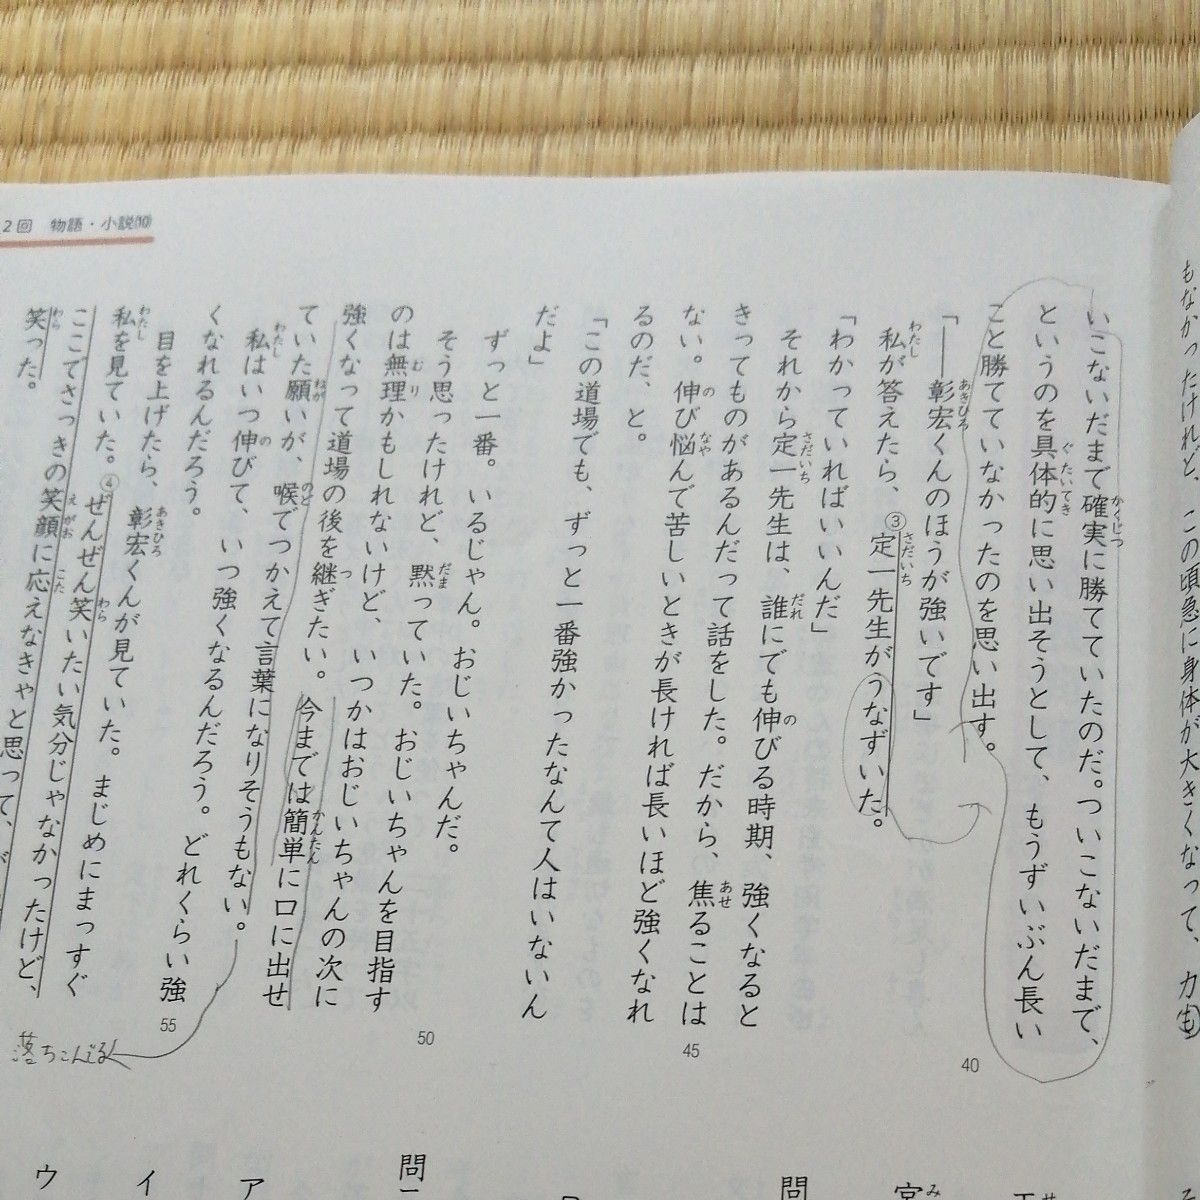 もなかったけれど、この頃急に身体が大きくなって、力も
いこないだまで確実に勝てていたのだ。ついこないだまで、
というのを具体的に思い出そうとして、もうずいぶん長い
こと勝てていなかったのを思い出す。
「――彰宏くんのほうが強いです」
私が答えたら、③定一先生がうなずいた。
「わかっていればいいんだ」
それから定一先生は、誰にでも伸びる時期、強くなるとき
きってものがあるんだって話をした。だから、焦ることは
ない。伸び悩んで苦しいときが長ければ長いほど強くなれ
るのだ、と。
「この道場でも、ずっと一番強かったなんて人はいないん
だよ」
ずっと一番。いるじゃん。おじいちゃんだ。
そう思ったけれど、黙っていた。おじいちゃんを目指す
のは無理かもしれないけど、いつかはおじいちゃんの次に
強くなって道場の後を継ぎたい。今までは簡単に口に出せ
ていた願いが、喉でつかえて言葉になりそうもない。
私はいつ伸びて、いつ強くなるんだろう。どれくらい強
くなれるんだろう。
目を上げたら、彰宏くんが見ていた。まじめにまっすぐ
私を見ていた。④ぜんぜん笑いたい気分じゃなかったけど、
ここでさっきの笑顔に応えなきゃと思って、
笑った。
2回 物語・小説⑽
40
45
50
55
落ちこんでる
問
問
ア
イ
ウ